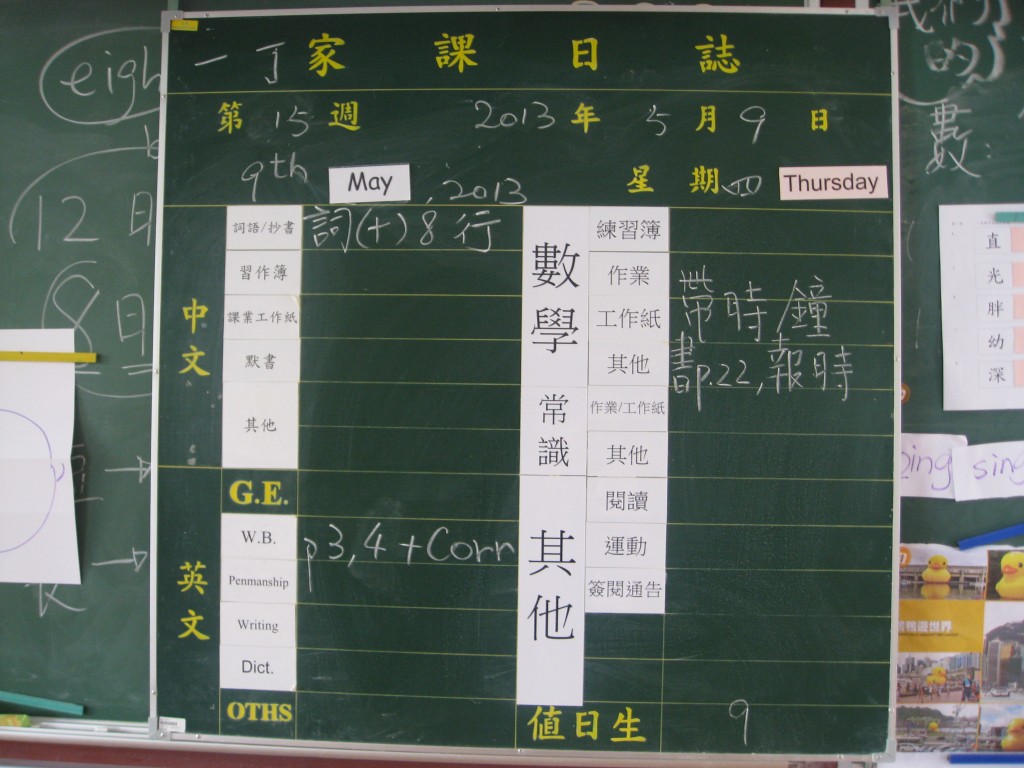 一丁家課日誌
第15週 2013年5月9日
9th May, 2013 星期四 Thursday
中文
詞語/抄書 詞(十)8行
習作簿
課業工作紙
默書
其他
英文
G.E.
W.B. p3,4+Corr
Penmanship
Writing
Dict.
OTHS
數學
練習簿
作業 帶時鐘
工作紙
其他 書p.22,報時
常識
作業/工作紙
其他
其他
閱讀
運動
簽閱通告
值日生 9
eigh
12日
8日
我們
的
數:
直
光
胖
幼
深
sing